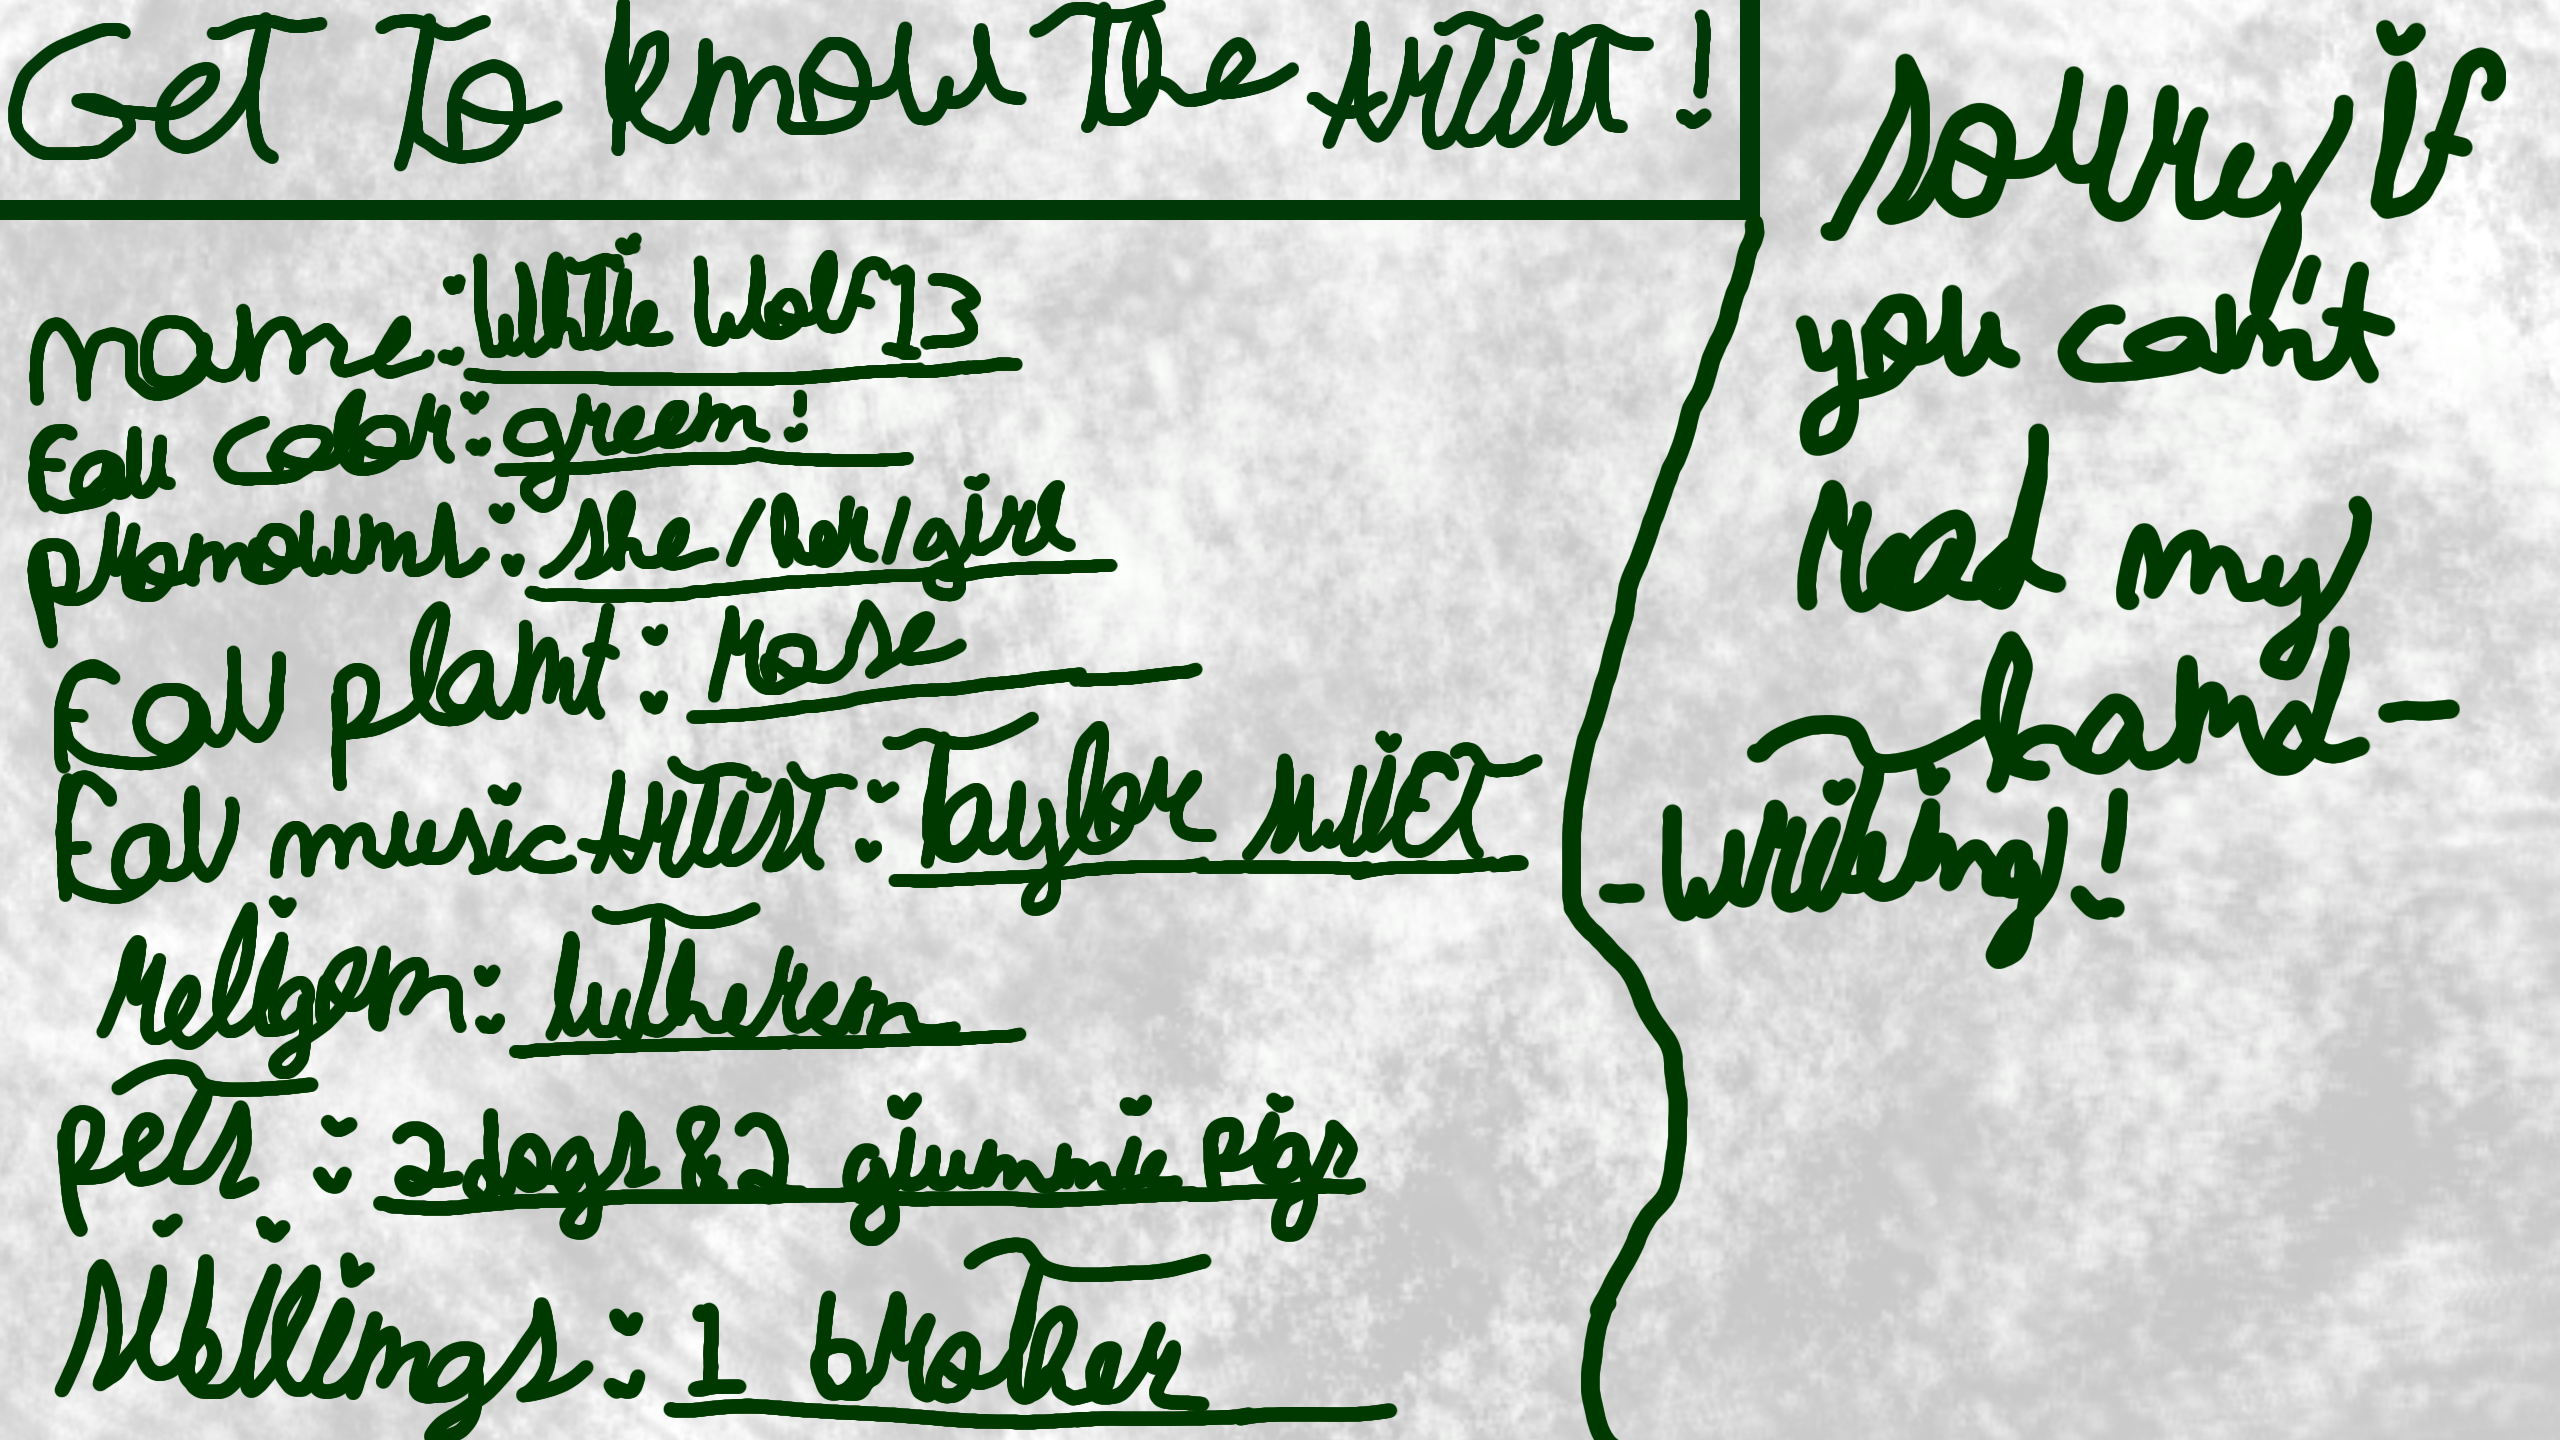 Get To know The Artist!
name: White Wolf13
Fav color: green!
pronouns: she/her/girl
Fav plant: rose
Fav music Artist: Taylor swift
religon: lutheren
pets: 2 dogs & 2 giunnie pigs
sibllings: 1 brother
sorry if
you can't
read my
hand-
-writing!